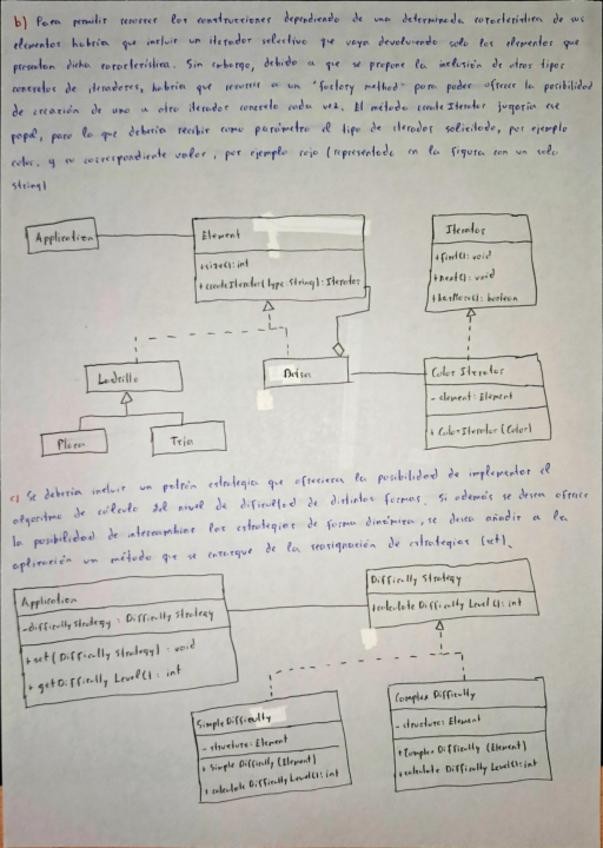 b) Para permitir recorrer las construcciones dependiendo de una determinada característica de sus
elementos habría que incluir un iterador selectivo que vaya devolviendo solo los elementos que
presentan dicha característica. Sin embargo, debido a que se propone la inclusión de otros tipos
concretos de iteradores, habría que recurrir a un "factory method" para poder ofrecer la posibilidad
de creación de uno u otro iterador concreto cada vez. El método createIterator jugaría ese
papel, para lo que debería recibir como parámetro el tipo de iterador solicitado, por ejemplo
color, y su correspondiente valor, por ejemplo rojo (representado en la figura con un solo
string)
Application
Element
+size(): int
+createIterator(type:String): Iterator
Iterator
+first(): void
+next(): void
+hasMore(): boolean
Ladrillo
Placa
Teja
Color Iterator
- element: Element
+ ColorIterator (Color)
c) Se debería incluir un patrón estrategia que ofreciera la posibilidad de implementar el
algoritmo de cálculo del nivel de dificultad de distintas formas. Si además se desea ofrecer
la posibilidad de intercambiar las estrategias de forma dinámica, se desea añadir a la
aplicación un método que se encargue de la reasignación de estrategias (set).
Application
-difficultyStrategy : Difficulty Strategy
+set( Difficulty Strategy) : void
+ getDifficulty Level(): int
Difficulty Strategy
+calculate Difficulty Level(): int
SimpleDifficulty
- structure: Element
+ Simple Difficulty (Element)
+ calculate Difficulty Level(): int
Complex Difficulty
- structure: Element
+Complex Difficulty (Element)
+calculate Difficulty Level(): int